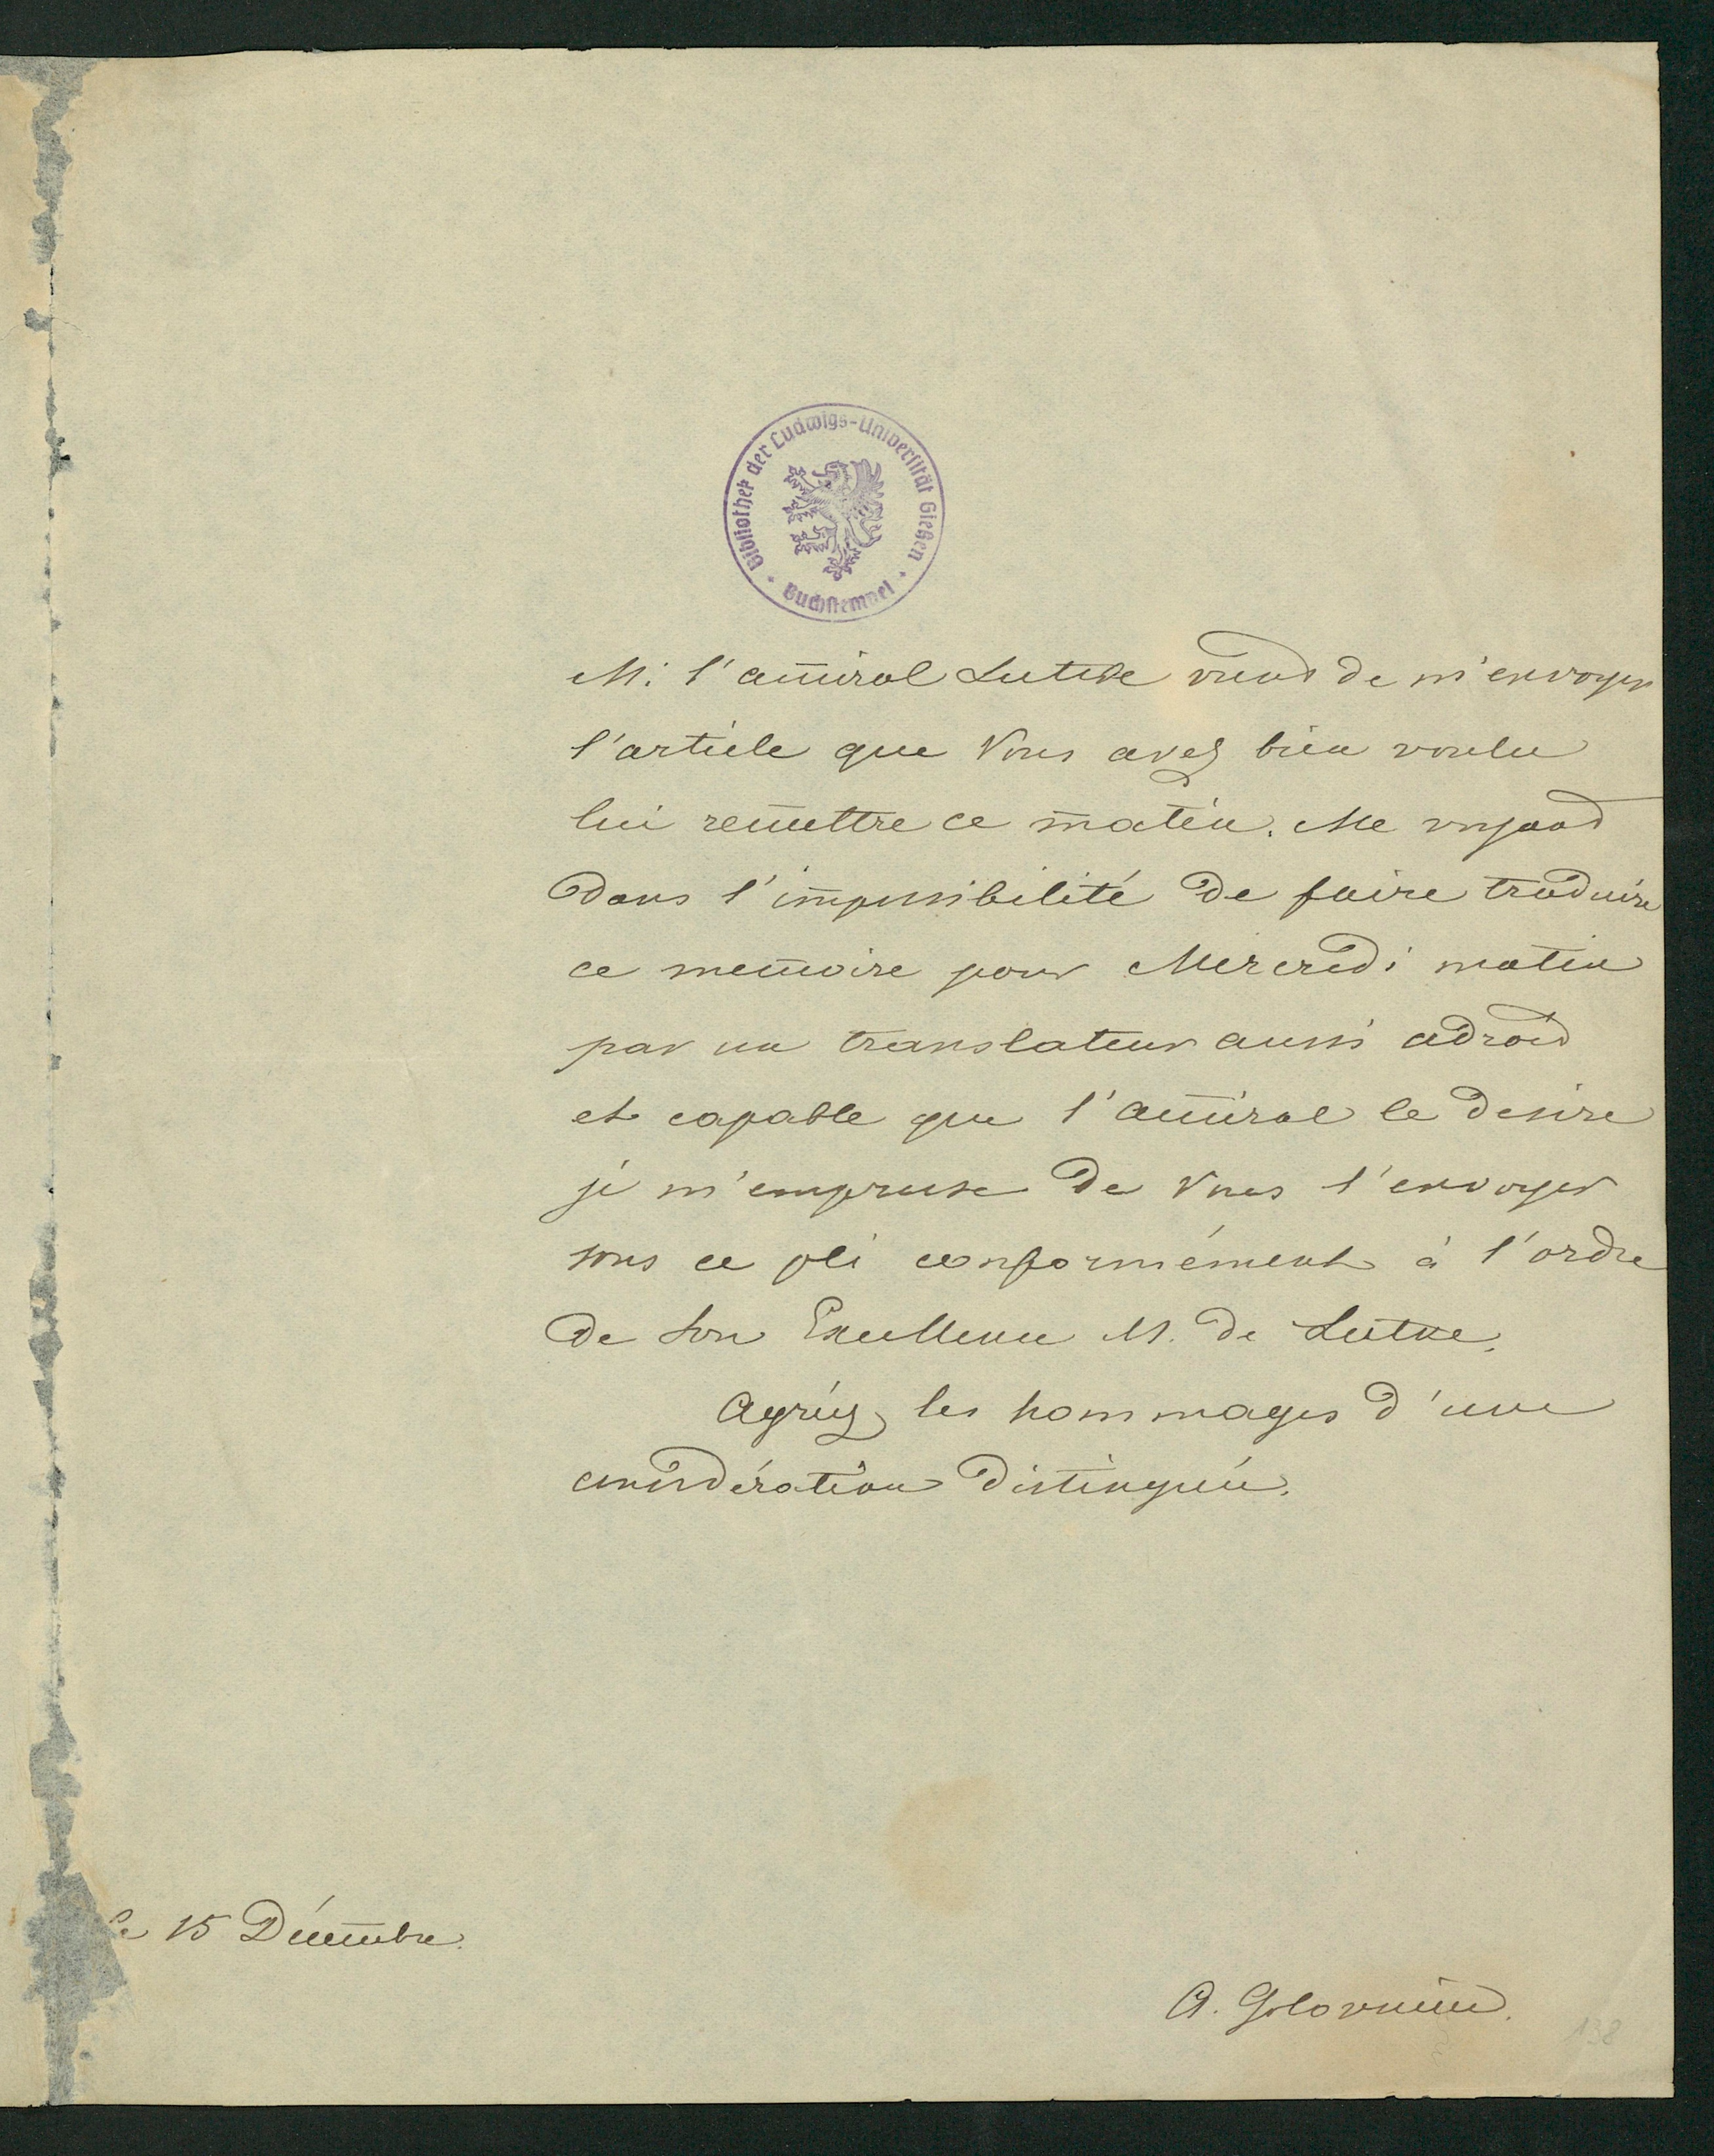 Bibliothek der Ludwigs-Universität Gießen
Buchstempel
M. l'amiral Lutke vient de m'envoyer
l'article que Vous avez bien voulu
lui remettre ce matin. Me voyant
dans l'impossibilité de faire traduire
ce memoire pour Mercredi matin
par un translateur aussi adroit
et capable que l'amiral le desire
je m'empresse de Vous l'envoyer
sous ce pli conformément à l'ordre
de Son Excellence M. de Lutke.
Agréez les hommages d'une
considération distinguée.
Le 15 Décembre.
A. Golovnine.
138